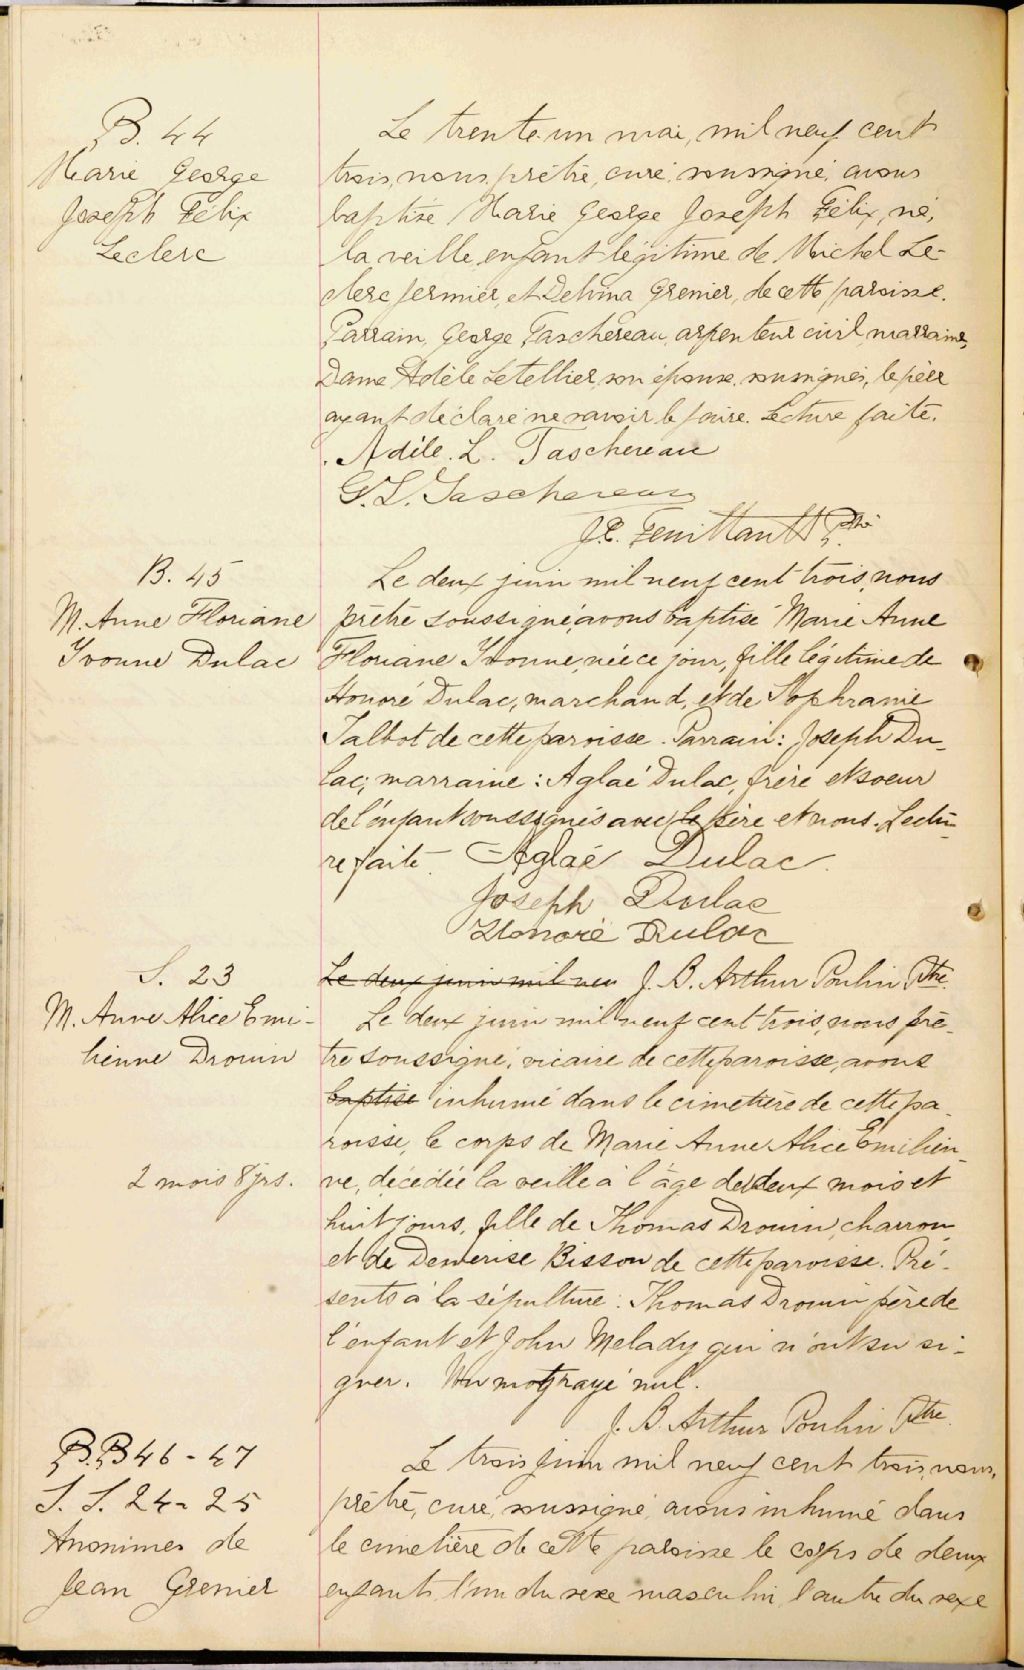 B. 44
Marie George
Joseph Félix
Leclerc
Le trente-un mai, mil neuf cent
trois, nous, prêtre, curé, soussigné, avons
baptisé Marie George Joseph Félix, né,
la veille, enfant légitime de Michel Le-
clerc fermier, et Delima Grenier, de cette paroisse.
Parrain, George Taschereau, arpenteur civil, marraine,
Dame Adèle Letellier, son épouse, soussignés, le père
ayant déclaré ne savoir le faire. Lecture faite.
Adèle. L. Taschereau
G. L. Taschereau
J.E. Feuiltault Ptre
B. 45
M. Anne Floriane
Yvonne Dulac
Le deux juin mil neuf cent trois, nous
prêtre soussigné, avons baptisé Marie Anne
Floriane Yvonne, née ce jour, fille légitime de
Honoré Dulac, marchand, et de Sophranie
Talbot de cette paroisse. Parrain: Joseph Du-
lac; marraine: Aglaé Dulac, frère et soeur
de l'enfant soussignés avec le père et nous. Lectu-
re faite. Aglaé Dulac.
Joseph Dulac
Honoré Dulac
Le deux juin mil neu J. B. Arthur Poulin Ptre
S. 23
M. Anne Alice Emi-
lienne Drouin
2 mois 8 jrs.
Le deux juin mil neuf cent trois, nous prê-
tre soussigné, vicaire de cette paroisse, avons
baptisé inhumé dans le cimetière de cette pa-
roisse, le corps de Marie Anne Alice Emilien-
ne, décédée la veille à l'âge de deux mois et
huit jours, fille de Thomas Drouin, charron
et de Demerise Bisson de cette paroisse. Pré-
sents à la sépulture: Thomas Drouin père de
l'enfant et John Melady qui n'ont su si-
gner. Un mot rayé nul.
J. B. Arthur Poulin Ptre.
B. B 46 - 47
S. S. 24 - 25
Anonimes de
Jean Grenier
Le trois juin mil neuf cent trois, nous,
prêtre, curé, soussigné, avons inhumé dans
le cimetière de cette paroisse le corps de deux
enfants, l'un du sexe masculin, l'autre du sexe